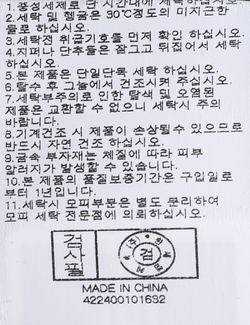 1.중성세제로 단 시간내에 세탁하십시오.
2.세탁 및 헹굼은 30℃정도의 미지근한
물로 하십시오.
3.세탁전 취급기호를 먼저 확인 하십시오.
4.지퍼나 단추들은 잠그고 뒤집어서 세탁
하십시오.
5.본 제품은 단일단독 세탁 하십시오.
6.탈수 후 그늘에서 건조시켜 주십시오.
7.세탁부주의로 인한 탈색 및 오염된
제품은 교환할 수 없으니 세탁시 주의
바랍니다.
8.기계건조 시 제품이 손상될수 있으므로
반드시 자연 건조 하십시오.
9.금속 부자재는 체질에 따라 피부
알러지가 발생할 수 있습니다.
10.본 제품의 품질보증기간은 구입일로
부터 1년입니다.
11.세탁시 모피부분은 별도 분리하여
모피 세탁 전문점에 의뢰하십시오.
검사필
검
MADE IN CHINA
422400101632